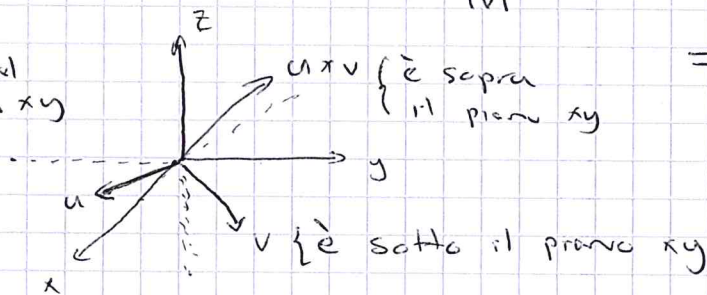 z
xy
u × v { è sopra
il piano xy
=
y
u
v { è sotto il piano xy
x